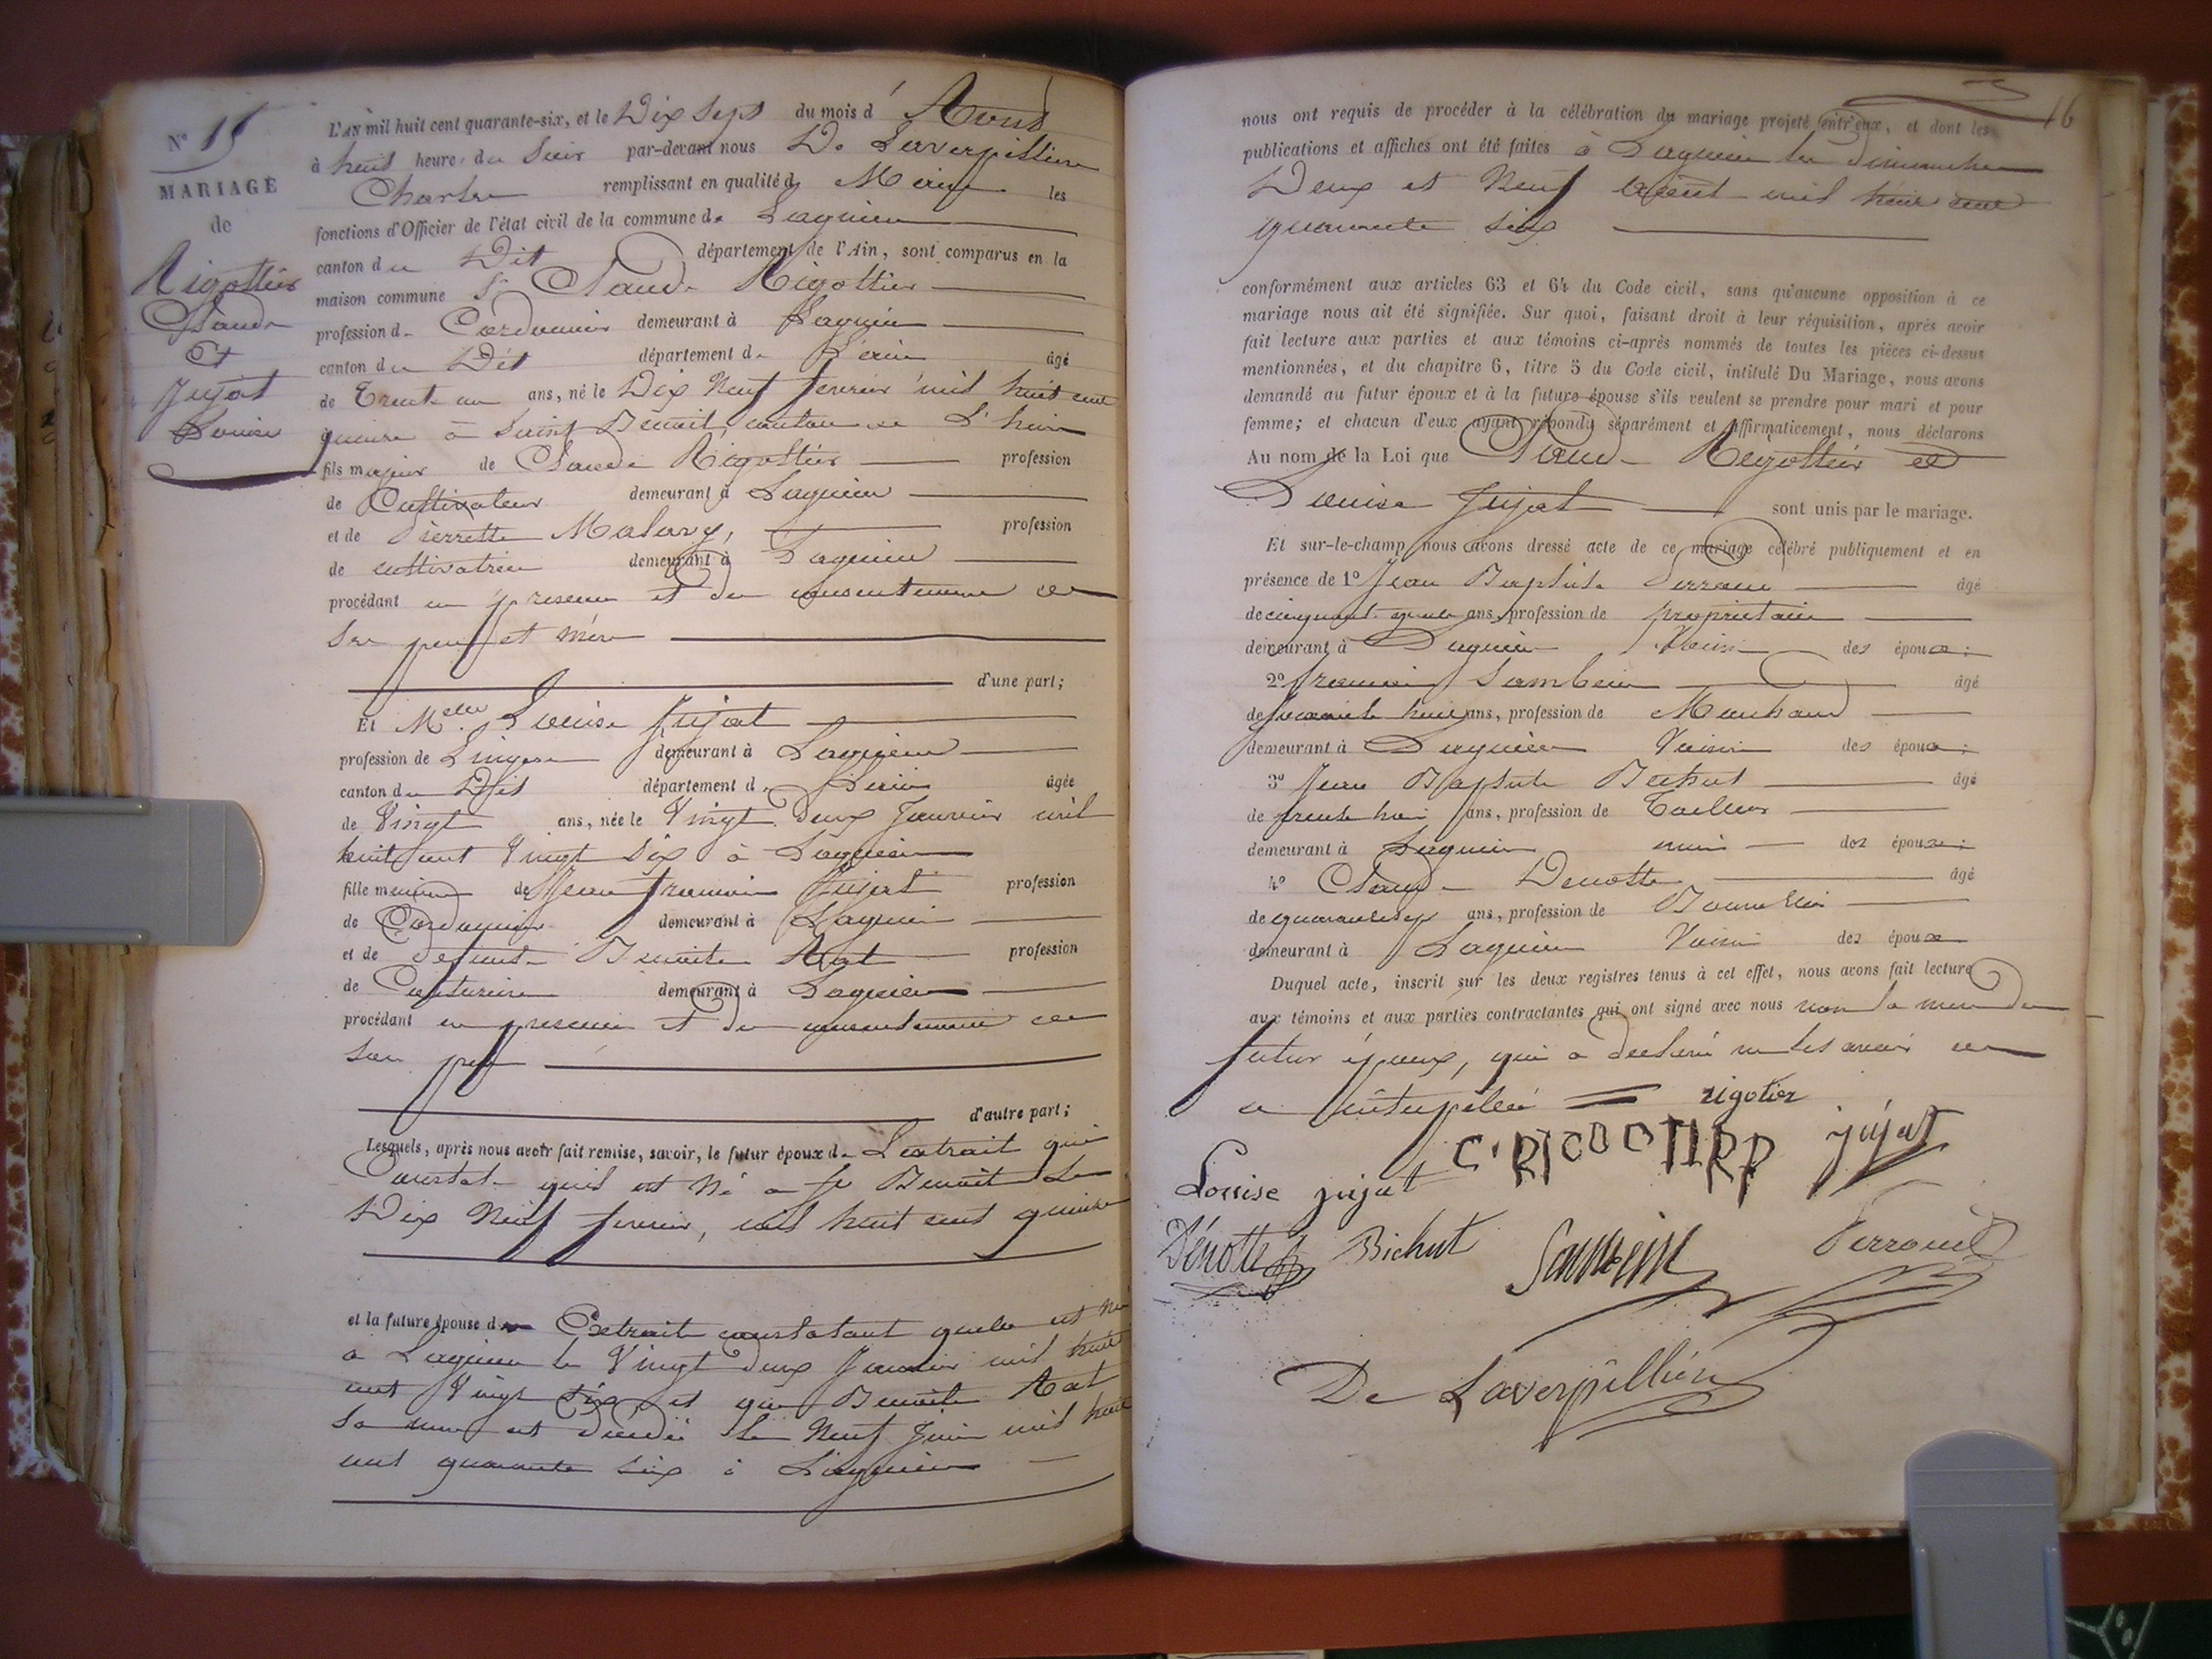 N° 15
MARIAGE
de
Rigottier
Claude
Et
Jujat
Louise
L'AN mil huit cent quarante-six, et le Dix Sept du mois d' Avril
à huit heure du Soir par-devant nous De Laverpilliere
Charles remplissant en qualité de Maire les
fonctions d'Officier de l'état civil de la commune de Lagnieu
canton du Dit département de l'Ain, sont comparus en la
maison commune Sr Claude Rigottier
profession de Cordonnier demeurant à Lagnieu
canton du Dit département de L'ain âgé
de Trente un ans, né le Dix Neuf fevrier mil huit cent
quinze à Saint Benoit, canton de L'huis
fils majeur de Claude Rigottier profession
de Cultivateur demeurant à Lagnieu
et de Pierrette Malary, profession
de cultivatrice demeurant à Lagnieu
procédant en presence et du consentement de
Ses pere et mère
d'une part;
Et Melle Louise Jujat
profession de Lingere demeurant à Lagnieu
canton du Dit département de L'ain âgée
de Vingt ans, née le Vingt Deux Janvier mil
huit cent Vingt Six à Lagnieu
fille mineure de Jean francois Jujat profession
de Cordonnier demeurant à Lagnieu
et de defunte Benoite Rat profession
de Couturiere demeurant à Lagnieu
procédant en presence et du consentement de
Son pere
d'autre part;
Lesquels, après nous avoir fait remise, savoir, le futur époux de L'extrait qui
Constate quil est Né a St Benoit Le
Dix Neuf fevrier, mil huit cent quinze
et la future épouse de Extrait constatant quelle est Née
à Lagnieu le Vingt deux Janvier mil huit
cent Vingt Six et que Benoite Rat
Sa mere est décédée le Neuf Juin mil huit
cent quarante six à Lagnieu
16
nous ont requis de procéder à la célébration du mariage projeté entr'eux, et dont les
publications et affiches ont été faites à Lagnieu les Dimanches
Deux et Neuf mil huit cent
quarante Six
conformément aux articles 63 et 64 du Code civil, sans qu'aucune opposition à ce
mariage nous ait été signifiée. Sur quoi, faisant droit à leur réquisition, après avoir
fait lecture aux parties et aux témoins ci-après nommés de toutes les pièces ci-dessus
mentionnées, et du chapitre 6, titre 5 du Code civil, intitulé Du Mariage, nous avons
demandé au futur époux et à la future épouse s'ils veulent se prendre pour mari et pour
femme; et chacun d'eux ayant répondu séparément et affirmativement, nous déclarons
Au nom de la Loi que Claude Rigottier et
Louise Jujat sont unis par le mariage.
Et sur-le-champ nous avons dressé acte de ce mariage célébré publiquement et en
présence de 1° Jean Baptiste Perroud âgé
de cinquante quatre ans, profession de proprietaire
demeurant à Lagnieu Voisin des époux;
2° francois Sambein âgé
de ans, profession de Marchand
demeurant à Lagnieu Voisin des époux;
3° Jean Baptiste Bichut âgé
de trente huit ans, profession de Tailleur
demeurant à Lagnieu des époux;
4° Claude Denotte âgé
de quarante sept ans, profession de Bourrelier
demeurant à Lagnieu Voisin des époux
Duquel acte, inscrit sur les deux registres tenus à cet effet, nous avons fait lecture
aux témoins et aux parties contractantes qui ont signé avec nous non la mere du
futur époux, qui a declaré ne les avoir de
ce interpellée = rigotier
C. RIGOOTIRR jujat
Louise jujat
Dénotte Bichut Sambein Perroud
De Laverpilliere